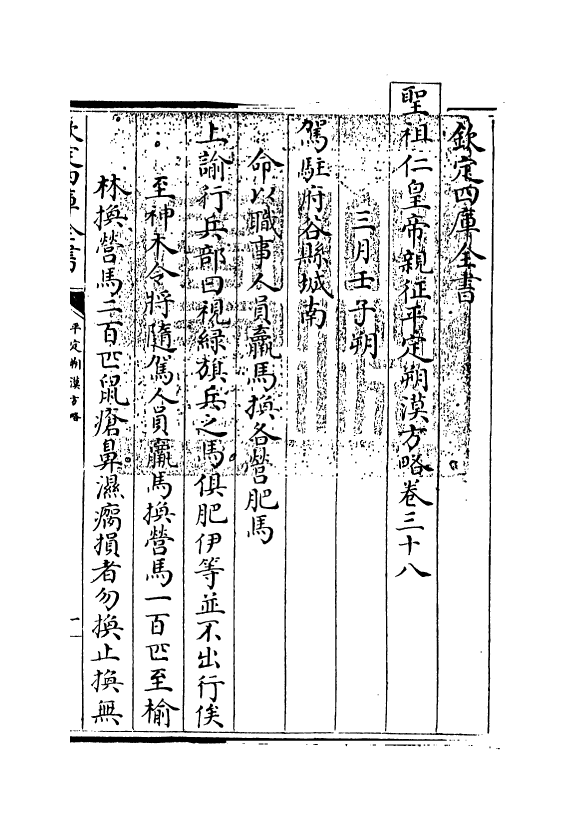 欽定四庫全書
聖祖仁皇帝親征平定朔漠方略卷三十八
三月壬子朔
駕駐府谷縣城南
命以職事人員羸馬換各營肥馬
上諭行兵部曰視綠旗兵之馬俱肥伊等並不出行俟
至神木令將隨駕人員羸馬換營馬一百匹至榆
林換營馬二百匹鼠瘡鼻濕瘸損者勿換止換無
欽定四庫全書
平定朔漠方略
一